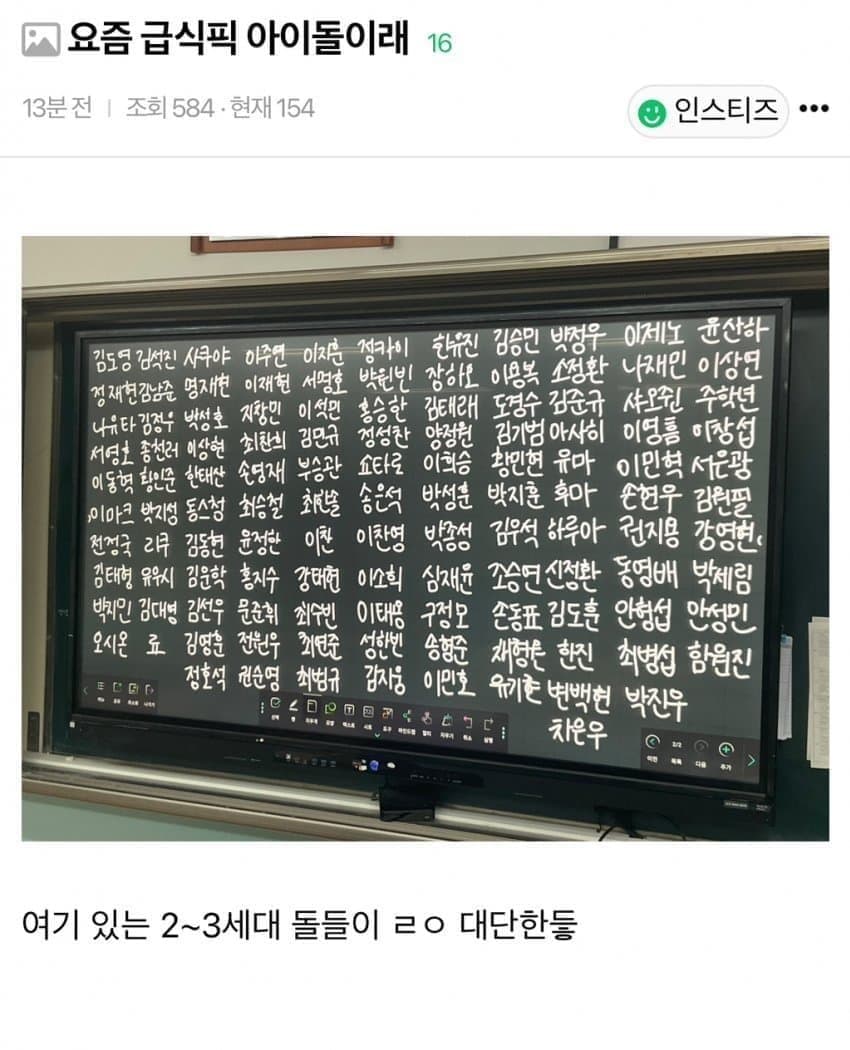 요즘 급식픽 아이돌이래 16
13분 전 | 조회 584 · 현재 154
인스티즈
김도영 김석진 사쿠야 이주연 이지훈 정카이 한유진 김승민 박정우 이제노 윤산하
정재현 김남준 명재현 이재현 서명호 박원빈 장하오 이용복 소정환 나재민 이상연
나유타 김정우 박성호 지창민 이석민 홍승한 김태래 도경수 김준규 샤오쥔 주학년
서영호 종천러 이상현 최찬희 김민규 정성찬 양정원 김기범 아사히 이영흠 이창섭
이동혁 황인준 한태산 손영재 부승관 쇼타로 이희승 황민현 유마 이민혁 서은광
이마크 박지성 동스청 최승철 최한솔 송은석 박성훈 박지훈 후마 손현우 김원필
전정국 리쿠 김동현 윤정한 이찬 이찬영 박종성 김우석 하루아 권지용 강영현
김태형 유우시 김운학 홍지수 강태현 이소희 심재윤 조승연 신정환 동영배 박제림
박지민 김대영 김선우 문준휘 최수빈 이태용 구정모 손동표 김도훈 안형섭 안성민
오시온 료 김영훈 전원우 최연준 성한빈 송형준 채형원 한진 최병섭 함원진
정호석 권순영 최범규 김지웅 이민호 유기현 변백현 박진우
차은우
메뉴 공유 리스트 나가기
선택 펜 지우개 도형 텍스트 시트 도구 마인드맵 멀티 지우기 취소 실행
이전 2/2 목록 다음 추가
여기 있는 2~3세대 돌들이 ㄹㅇ 대단한듷